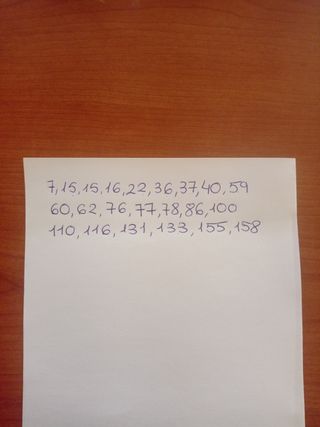 7,15,15,16,22,36,37,40,59
60,62,76,77,78,86,100
110,116,131,133,155,158